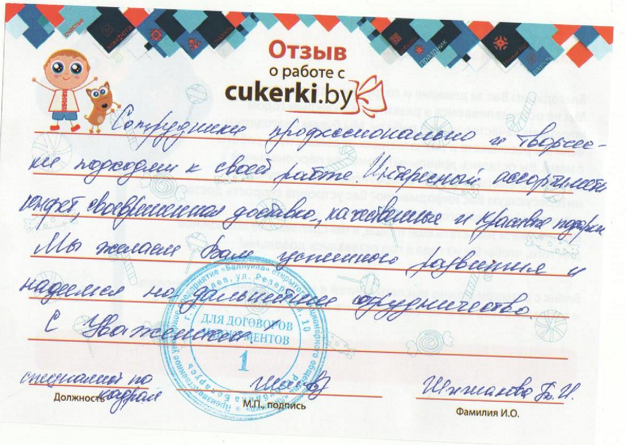 Отзыв
о работе с
cukerki.by
Сотрудники профессионально и творчес-
ки подходят к своей работе. Интересный ассортимент
конфет, своевременная доставка, качественные и красивые подарки
Мы желаем Вам успешного развития и
надеемся на дальнейшее сотрудничество.
С Уважением
ДЛЯ ДОГОВОРОВ
ДОКУМЕНТОВ
1
специалист по
кадрам
Должность
М.П., подпись
Фамилия И.О.